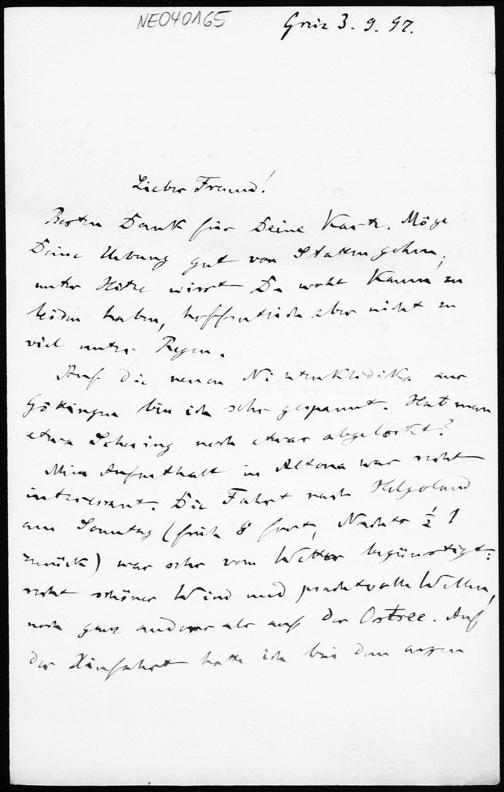 NE040165
Greiz 3. 9. 97.
Lieber Freund!
Besten Dank für Deine Karte. Möge
Deine Uebung gut von Statten gehen,
unter Hitze wirst Du wohl kaum zu
leiden haben, hoffentlich aber nicht zu
viel unter Regen.
Auf die neuen aus
Göttingen bin ich sehr gespannt. Hat man
etwa Schering noch etwas abgelockt?
Mein Aufenthalt in Altona war recht
interessant. Die Fahrt nach Helgoland
am Sonntag (früh 8 fort, Nachts ½ 1
zurück) war sehr vom Wetter begünstigt:
recht schöner Wind und prachtvolle Wellen,
noch ganz anders als auf der Ostsee. Auf
der Hinfahrt hatte ich bei dem argen